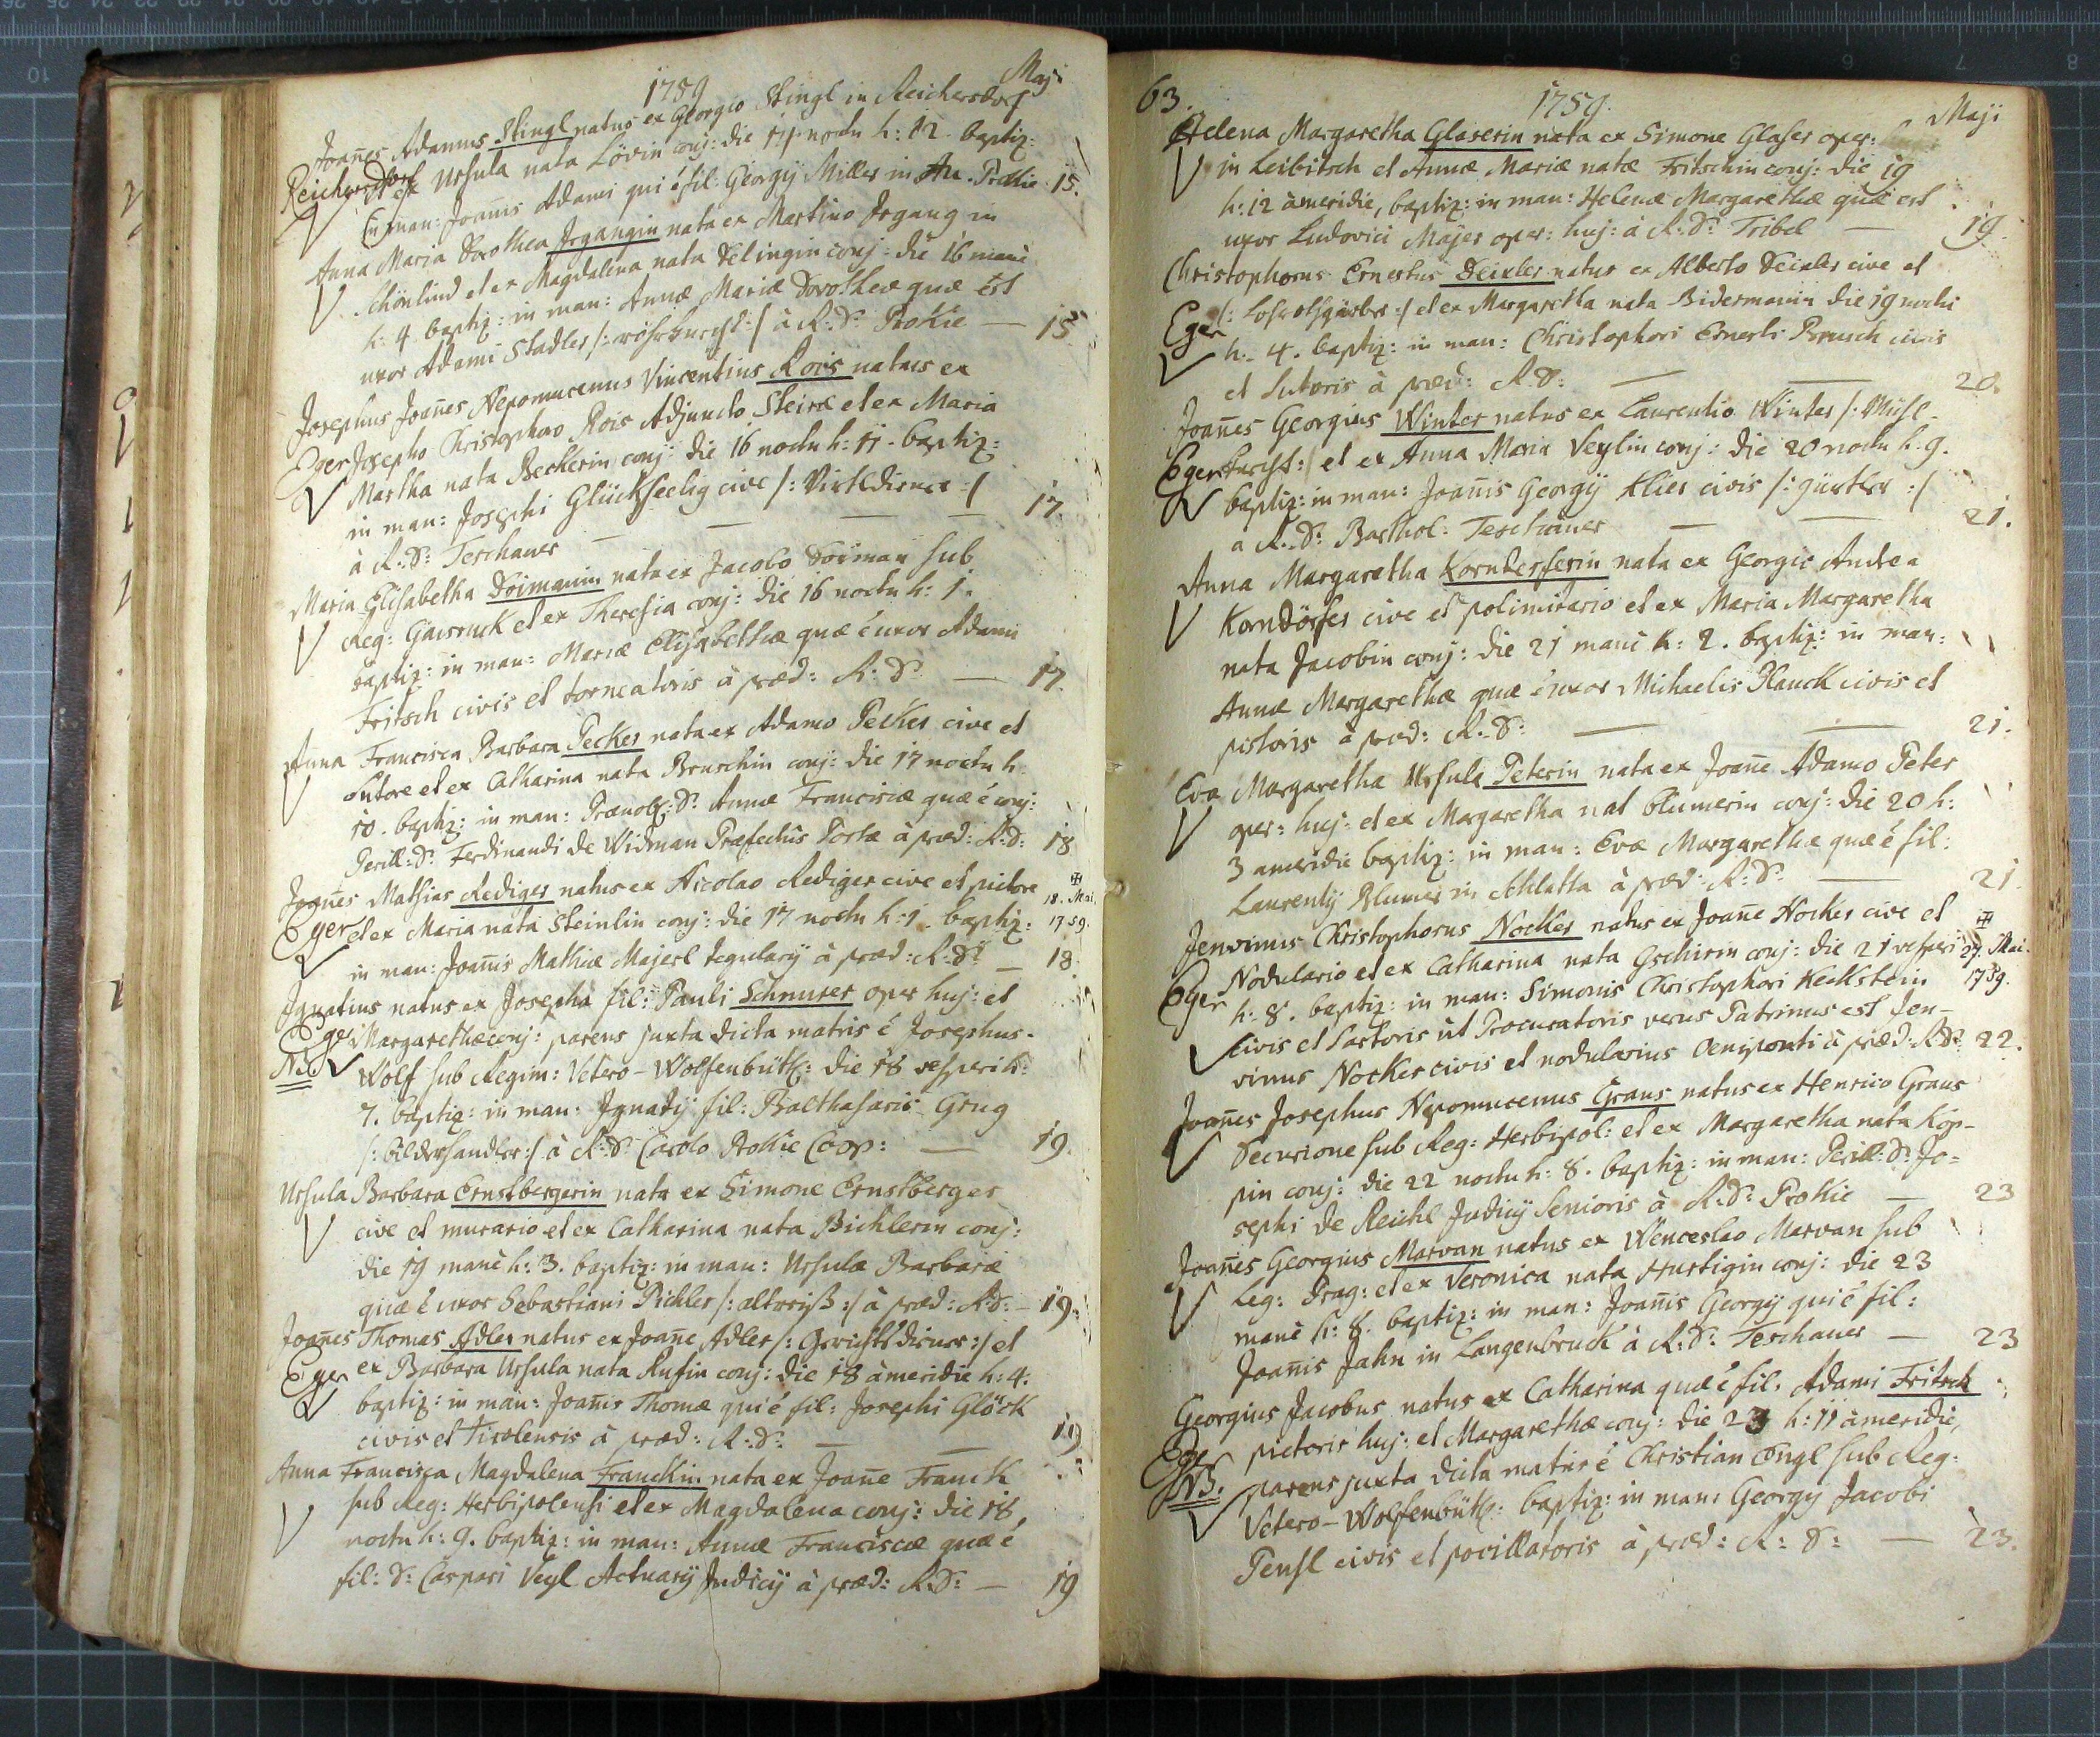 1759
Maji
Joañes Adamus Stingl natus ex Georgio Stingl in Reichersdorf
Reichersdorf et ex Ursula nata Lövin conj: die noctu h: 12. baptiz:
in man: Joañis Adami qui ē fil: Georgij Miller in Au. Prokie 15.
Anna Maria Dorothea Irgangin nata ex Martino Irgang in
Schönlind et ex Magdalena nata conj: die 16 manè
h: 4 baptiz: in man: Annæ Mariæ Dorotheæ quæ ēst
uxor Adami Stadler /: :/ à R: D: Prokie — 15
Josephus Joañes Nepomucenus Vincentius Rois natus ex
Eger Josepho Christophoro Rois Adjuncto et ex Maria
Martha nata Beckerin conj: die 16 noctu h: 11. baptiz:
in man: Josephi Glückseelig cive /: :/
à R: D: Teschauer — — — 17.
Maria Elisabetha Doimanin nata ex Jacobo Doiman sub
Reg: Gaisruck et ex Theresia conj: die 16 noctu h: 1.
baptiz: in man: Mariæ Elisabethæ quæ ē uxor Adami
Fritsch civis et torneatoris à præd: R: D: — 17.
Anna Francisca Barbara Pecker nata ex Adamo Pecker cive et
Sutore et ex Catharina nata Bruschin conj: die 17 noctu h:
10. baptiz: in man: Prænob: D: Annæ Franciscæ quæ ē conj:
Perill: D: Ferdinandi de Widman Præfectus Portæ à præd: R: D: 18
Joañes Mathias Rediger natus ex Nicolao Rediger cive et pictore 18. Mai.
Eger et ex Maria nata Steinlin conj: die 17 noctu h: 1. baptiz: 1759.
in man: Joañis Mathiæ Majerl tegularij à præd: R: D: — 18.
Ignatius natus ex Josepha fil: Pauli Schnurer oper huj: et
Eger Margarethæ conj: parens juxta dicta matris ē Josephus
NB. Wolf sub Regim: Vetero-Wolfenbütt: die 18 vesperi h:
7. baptiz: in man: Ignatij fil: Balthasaris Grug
/: bilderhandler :/ à R: D: Carolo Prokie Coop: — 19.
Ursula Barbara Ernstbergerin nata ex Simone Ernstberger
cive et murario et ex Catharina nata Bichlerin conj:
die 19 manè h: 3. baptiz: in man: Ursulæ Barbaræ
quæ ē uxor Sebastiani Pichler /: :/ à præd: R: D: — 19.
Joañes Thomas Adler natus ex Joañe Adler /: Gerichts diener :/ et
Eger ex Barbara Ursula nata Rufin conj: die 18 à meridie h: 4.
baptiz: in man: Joañis Thomæ qui ē fil: Josephi Glöck
civis et Tirolensis à præd: R: D: — — 19
Anna Francisca Magdalena Franckin nata ex Joañe Franck
sub Reg: Herbipolensi et ex Magdalena conj: die 18
noctu h: 9. baptiz: in man: Annæ Franciscæ quæ ē
fil: D: Caspari Veyl Actuarij Judicij à præd: R: D: — 19
63.
1759.
Maji
Helena Margaretha Glaserin nata ex Simone Glaser oper:
in Leibitsch et Annæ Mariæ natæ Fritschin conj: die 19
h: 12 à meridie, baptiz: in man: Helenæ Margarethæ quæ est
uxor Ludovici Majer oper: huj: à R: D: Tribel — 19.
Christophorus Ernestus Deixler natus ex Alberto Deixler cive et
Eger /: :/ et ex Margaretha nata Bidermanin die 19 noctu
h: 4. baptiz: in man: Christophori Ernesti Brusch civis
et Sutoris à præd: R: D: — — 20.
Joañes Georgius Winter natus ex Laurentio Winter /: Mühl-
Eger :/ et ex Anna Maria Veylin conj: die 20 noctu h: 9.
baptiz: in man: Joañis Georgij Klier civis /: gürtler :/
a R: D: Barthol: Teschauer — — 21.
Anna Margaretha Korndörferin nata ex Georgio Andrea
Korndörfer cive et polimitario et ex Maria Margaretha
nata Jacobin conj: die 21 manè h: 2. baptiz: in man:
Annæ Margarethæ quæ ē uxor Michaelis Hauck civis et
pistoris à præd: R: D: — — 21.
Eva Margaretha Ursula Peterin nata ex Joañe Adamo Peter
oper: huj: et ex Margaretha nat Blumerin conj: die 20 h:
3 à meridie baptiz: in man: Evæ Margarethæ quæ ē fil:
Laurentij Blumer in Schlatta à præd: R: D: — 21.
Jenvinus Christophorus Nocker natus ex Joañe Nocker cive et
Eger Nodulario et ex Catharina nata Gschirin conj: die 21 vesperi 27. Mai.
h: 8. baptiz: in man: Simonis Christophori Heckstein 1759.
civis et Sartoris ut Procuratoris verus Patrinus est Jen-
vinus Nocker civis et nodularius Oeniponti à præd: R: D: 22.
Joañes Josephus Nepomucenus Graus natus ex Henrico Graus
Decurione sub Reg: Herbipol: et ex Margaretha nata Köp-
pin conj: die 22 noctu h: 8. baptiz: in man: Perill: D: Jo-
sephi de Reichl Judicij Senioris à R: D: Prokie — 23
Joañes Georgius Marvan natus ex Wenceslao Marvan sub
Leg: Drag: et ex Veronica nata Hurtigin conj: die 23
manè h: 8. baptiz: in man: Joañis Georgij qui ē fil:
Joañis Jahn in Langenbruck à R: D: Teschauer — 23
Georgius Jacobus natus ex Catharina quæ ē fil: Adami Fritsch
Eger pictoris huj: et Margarethæ conj: die 23 h: 11 à meridie,
NB. parens juxta dicta matris ē Christian Engl sub Reg:
Vetero-Wolfenbütt: baptiz: in man: Georgij Jacobi
Pensl civis et pocillatoris à præd: R: D: — 23.